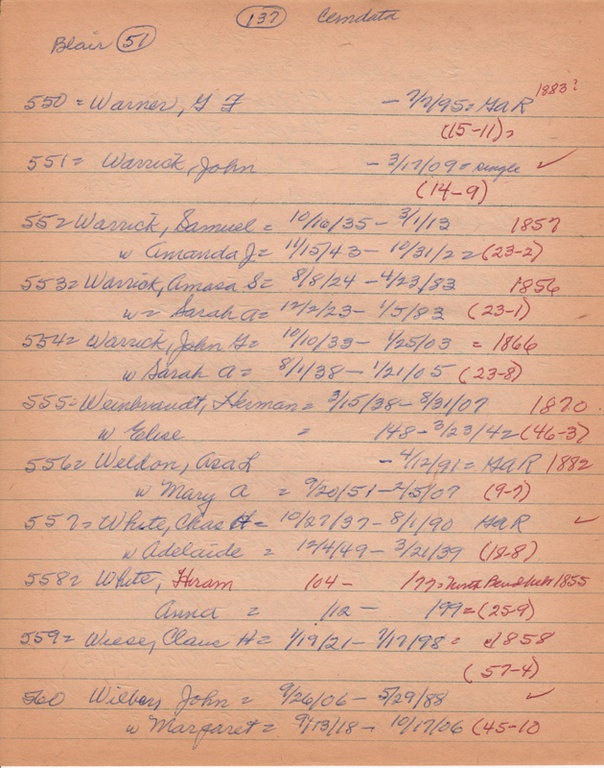 137 Cemdata
Blair 51
550 = Warner, G F - 7/7/95 = GAR 1883?
(15-11),
551 = Warrick, John - 3/17/09 = single ✓
(14-9)
552 Warrick, Samuel = 10/16/35 - 3/1/13 1857
w Amanda J = 11/15/43 - 10/31/22 = (23-2)
553 = Warrick, Amasa S = 8/8/24 - 4/23/83 1856
w = Sarah A = 12/2/23 - 1/5/83 (23-1)
554 = Warrick, John G = 10/10/33 - 1/25/03 = 1866
w Sarah A = 8/1/38 - 1/21/05 (23-8)
555 = Weinbrandt, Herman = 3/15/38 - 8/31/07 1870
w Elise = 148 - 3/23/42 = (46-3)
556 = Weldon, Asa L - 4/12/91 = GAR 1882
w Mary A = 9/20/51 - 2/5/07 (9-7)
557 = White, Chas H = 10/27/37 - 8/1/90 GAR ✓
w Adelaide = 12/4/49 - 3/21/39 (18-8)
558 = White, Hiram 104 - 177 = North Bend 1855
Anna = 112 - 199 = (25-9)
559 = Wiese, Claus H = 1/19/21 - 7/17/98 = 1858
(57-4)
560 Wilbery John = 9/26/06 - 5/29/88 ✓
w Margaret = 9/13/18 - 10/17/06 (45-10